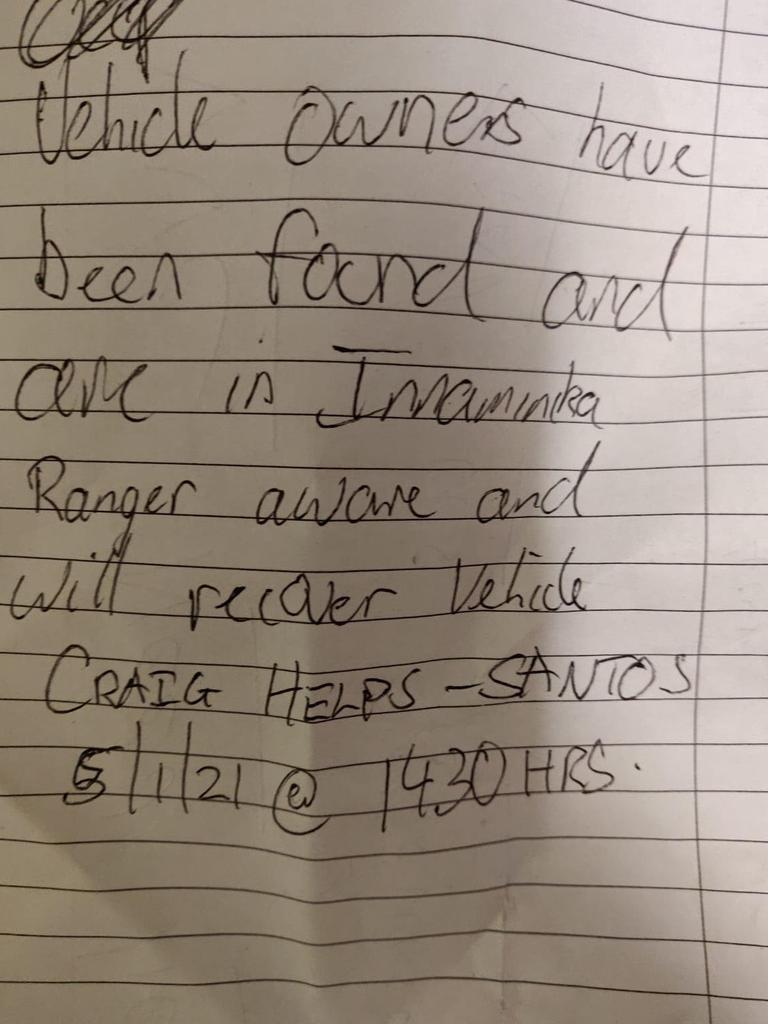 Vehicle owners have
been found and
are in Innaminka
Ranger aware and
will recover Vehicle
CRAIG HELPS - SANTOS
5/1/21 @ 1430 HRS.